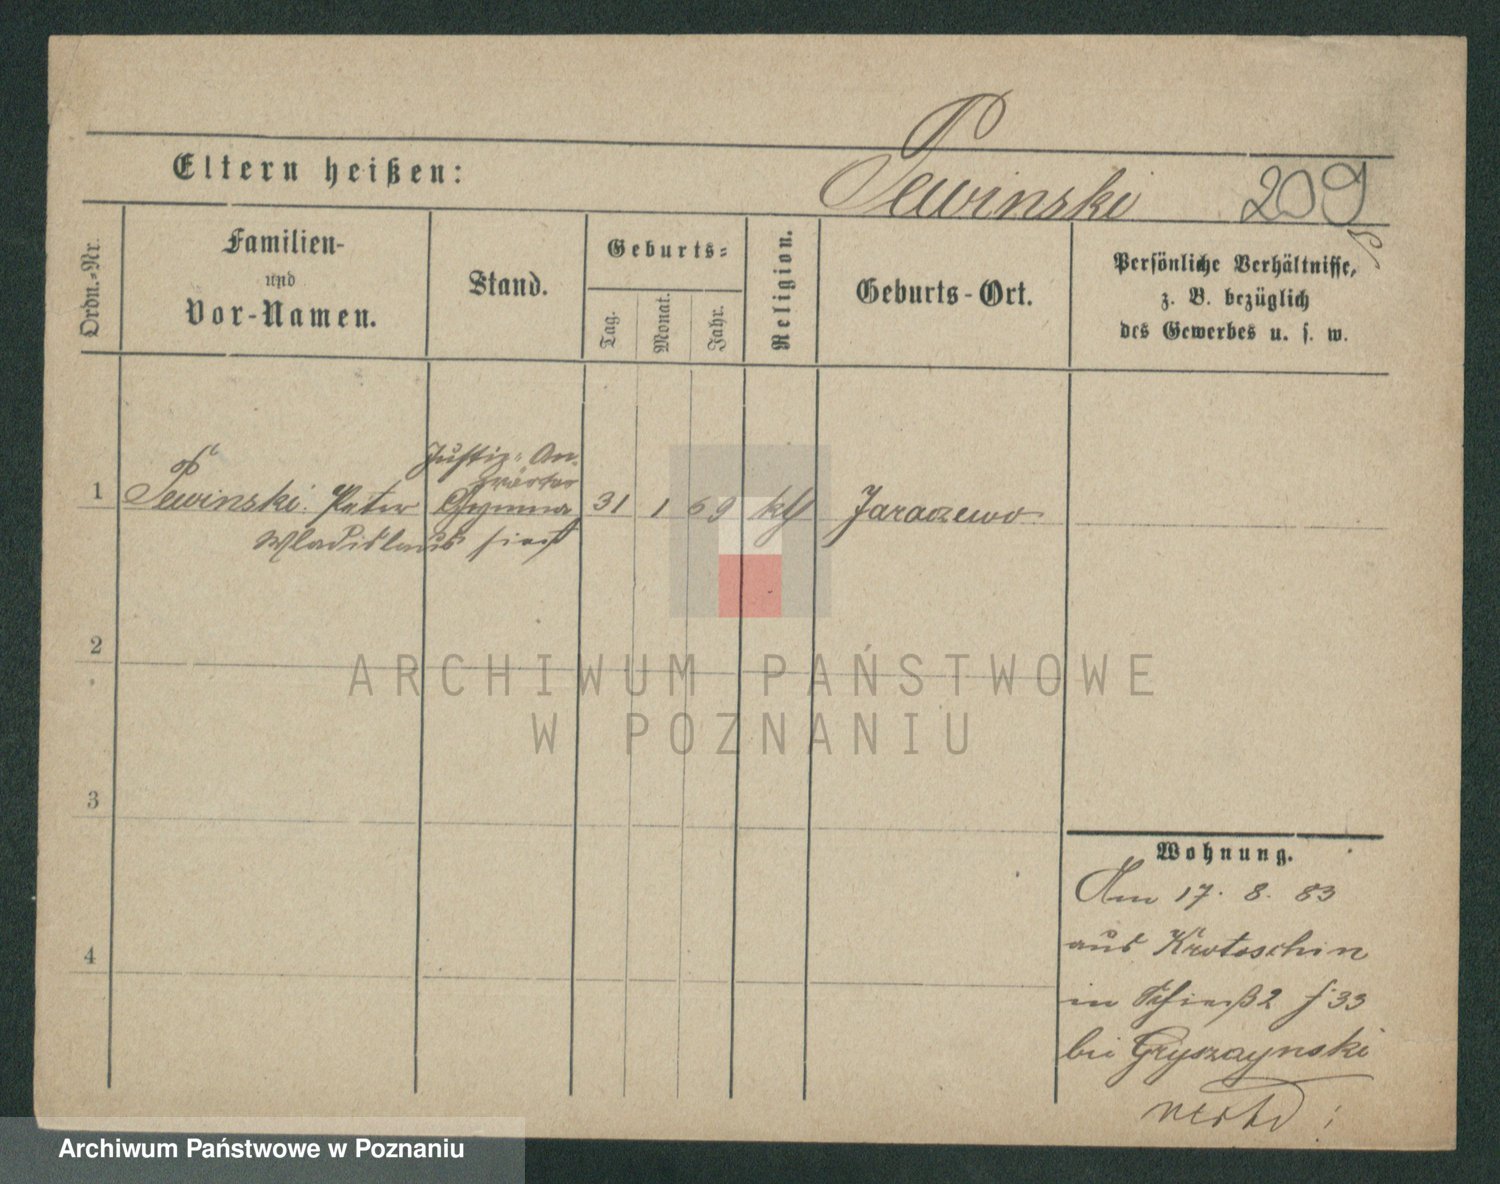 P
Eltern heißen:
Pewinski 209
Ordn.-Nr.
Familien-
und
Vor-Namen.
Stand.
Geburts-
Tag.
Monat.
Jahr.
Religion.
Geburts-Ort.
Persönliche Verhältnisse,
z. B. bezüglich
des Gewerbes u. s. w.
Justiz-An-
wärter
1 Pewinski Peter Gymna 31 1 69 kth Jaraczewo
Wladislaus siast
2
ARCHIWUM PAŃSTWOWE
W POZNANIU
3
Wohnung.
Am 17. 8. 83
4
aus Krotoschin
in 2 33
bei Gryszczynski
Archiwum Państwowe w Poznaniu